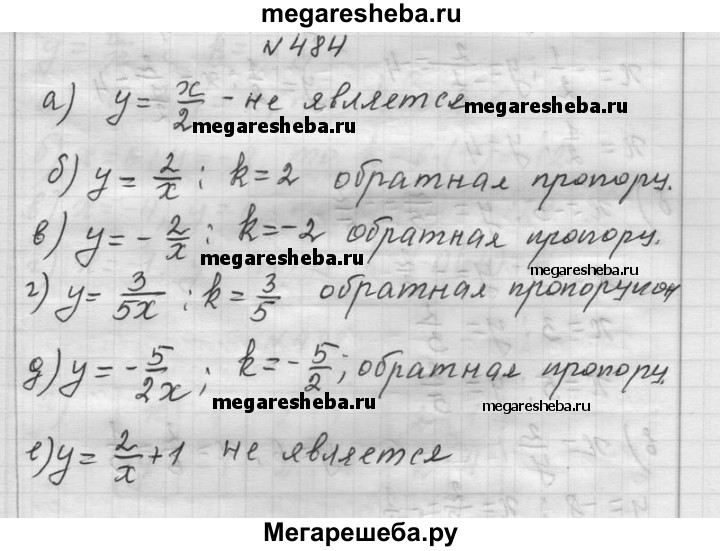 megaresheba.ru
№484
а) y = x/2 - не является
megaresheba.ru
megaresheba.ru
б) y = 2/x ; k = 2 обратная пропорц.
в) y = - 2/x ; k = -2 обратная пропорц.
megaresheba.ru
megaresheba.ru
г) y = 3/5x ; k = 3/5 обратная пропорцион
д) y = - 5/2x ; k = - 5/2 ; обратная пропорц.
megaresheba.ru
megaresheba.ru
е) y = 2/x + 1 не является
megaresheba.ru
Мегарешеба.ру